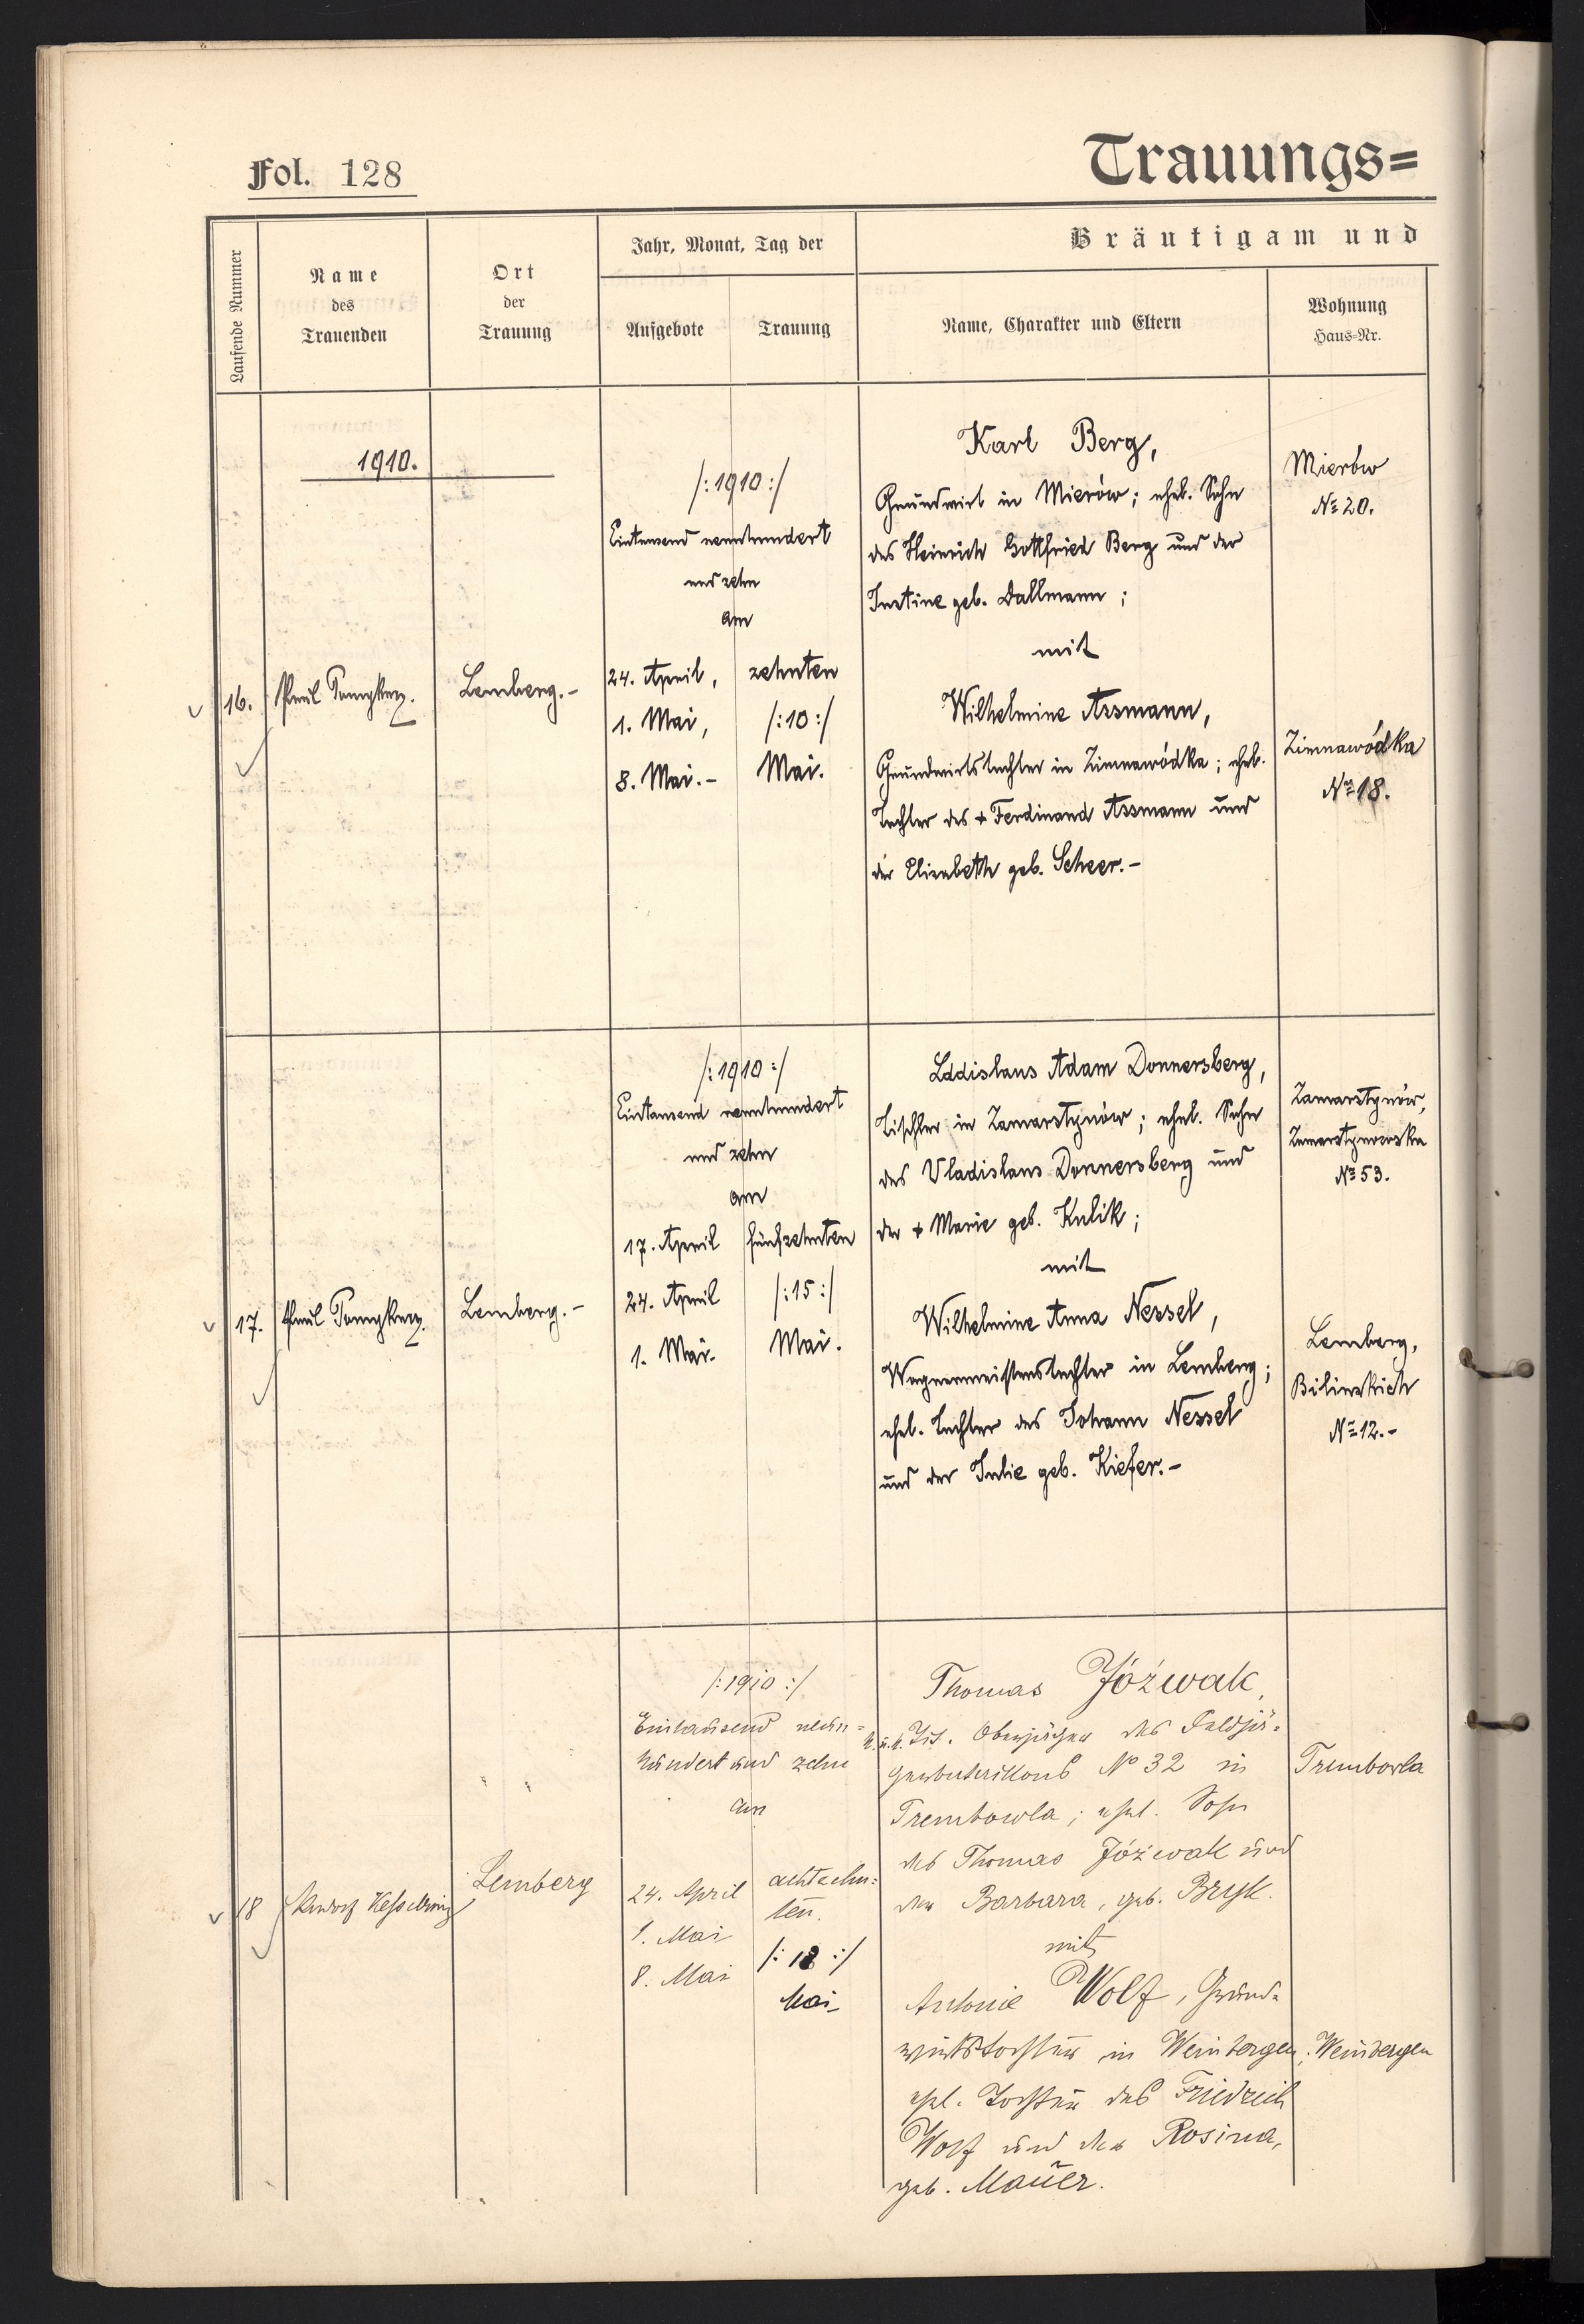 Fol. 128
Trauungs=
Laufende Nummer
Name
des
Trauenden
Ort
der
Trauung
Jahr, Monat, Tag der
Aufgebote
Trauung
Bräutigam und
Name, Charakter und Eltern
Wohnung
Haus-Nr.
1910.
16.
Paul
Lemberg.-
/:1910:/
Eintausend neunhundert
und zehn
am
24. April,
1. Mai,
8. Mai.-
zehnten
/:10:/
Mai.
Karl Berg,
Grundwirt in Mierów; ehel. Sohn
des Heinrich Gottfried Berg und der
Justine geb. Dallmann;
mit
Wilhelmine Assmann,
Grundwirtstochter in Zimnawódka; ehel.
Tochter des + Ferdinand Assmann und
der Elisabeth geb. Scheer.-
Mierów
No 20.
Zimnawódka
No 18.
17.
Paul
Lemberg.-
/:1910:/
Eintausend neunhundert
und zehn
am
17. April
24. April
1. Mai.
fünfzehnten
/:15:/
Mai.
Adam Donnersberg,
Tischler in Zamarstynów; ehel. Sohn
des Vladislaus Donnersberg und
der + Marie geb. Kulik;
mit
Wilhelmine Anna Nessel,
Wagnermeisterstochter in Lemberg;
ehel. Tochter des Johann Nessel
und der Julie geb. Kiefer.-
Zamarstynów,
Zamarstynowska
No 53.
Lemberg,
Bilinskich
No 12.-
18
Rudolf Kesselring
Lemberg
/:1910:/
Eintausend neun=
hundert und zehn
am
24. April
1. Mai
8. Mai
achtzehn=
ten.
/: 18 :/
Mai
Thomas Jóźwak,
k.u.k. Tit. Oberjäger des Feldjä=
gerbataillons No 32 in
Trembowla; ehel. Sohn
des Thomas Jóźwak und
der Barbara, geb. Bryk.
mit
Antonie Wolf, Grund=
wirtstochter in Weinbergen;
ehel. Tochter des Friedrich
Wolf und der Rosina,
geb. Mauer.
Trembowla
Weinbergen